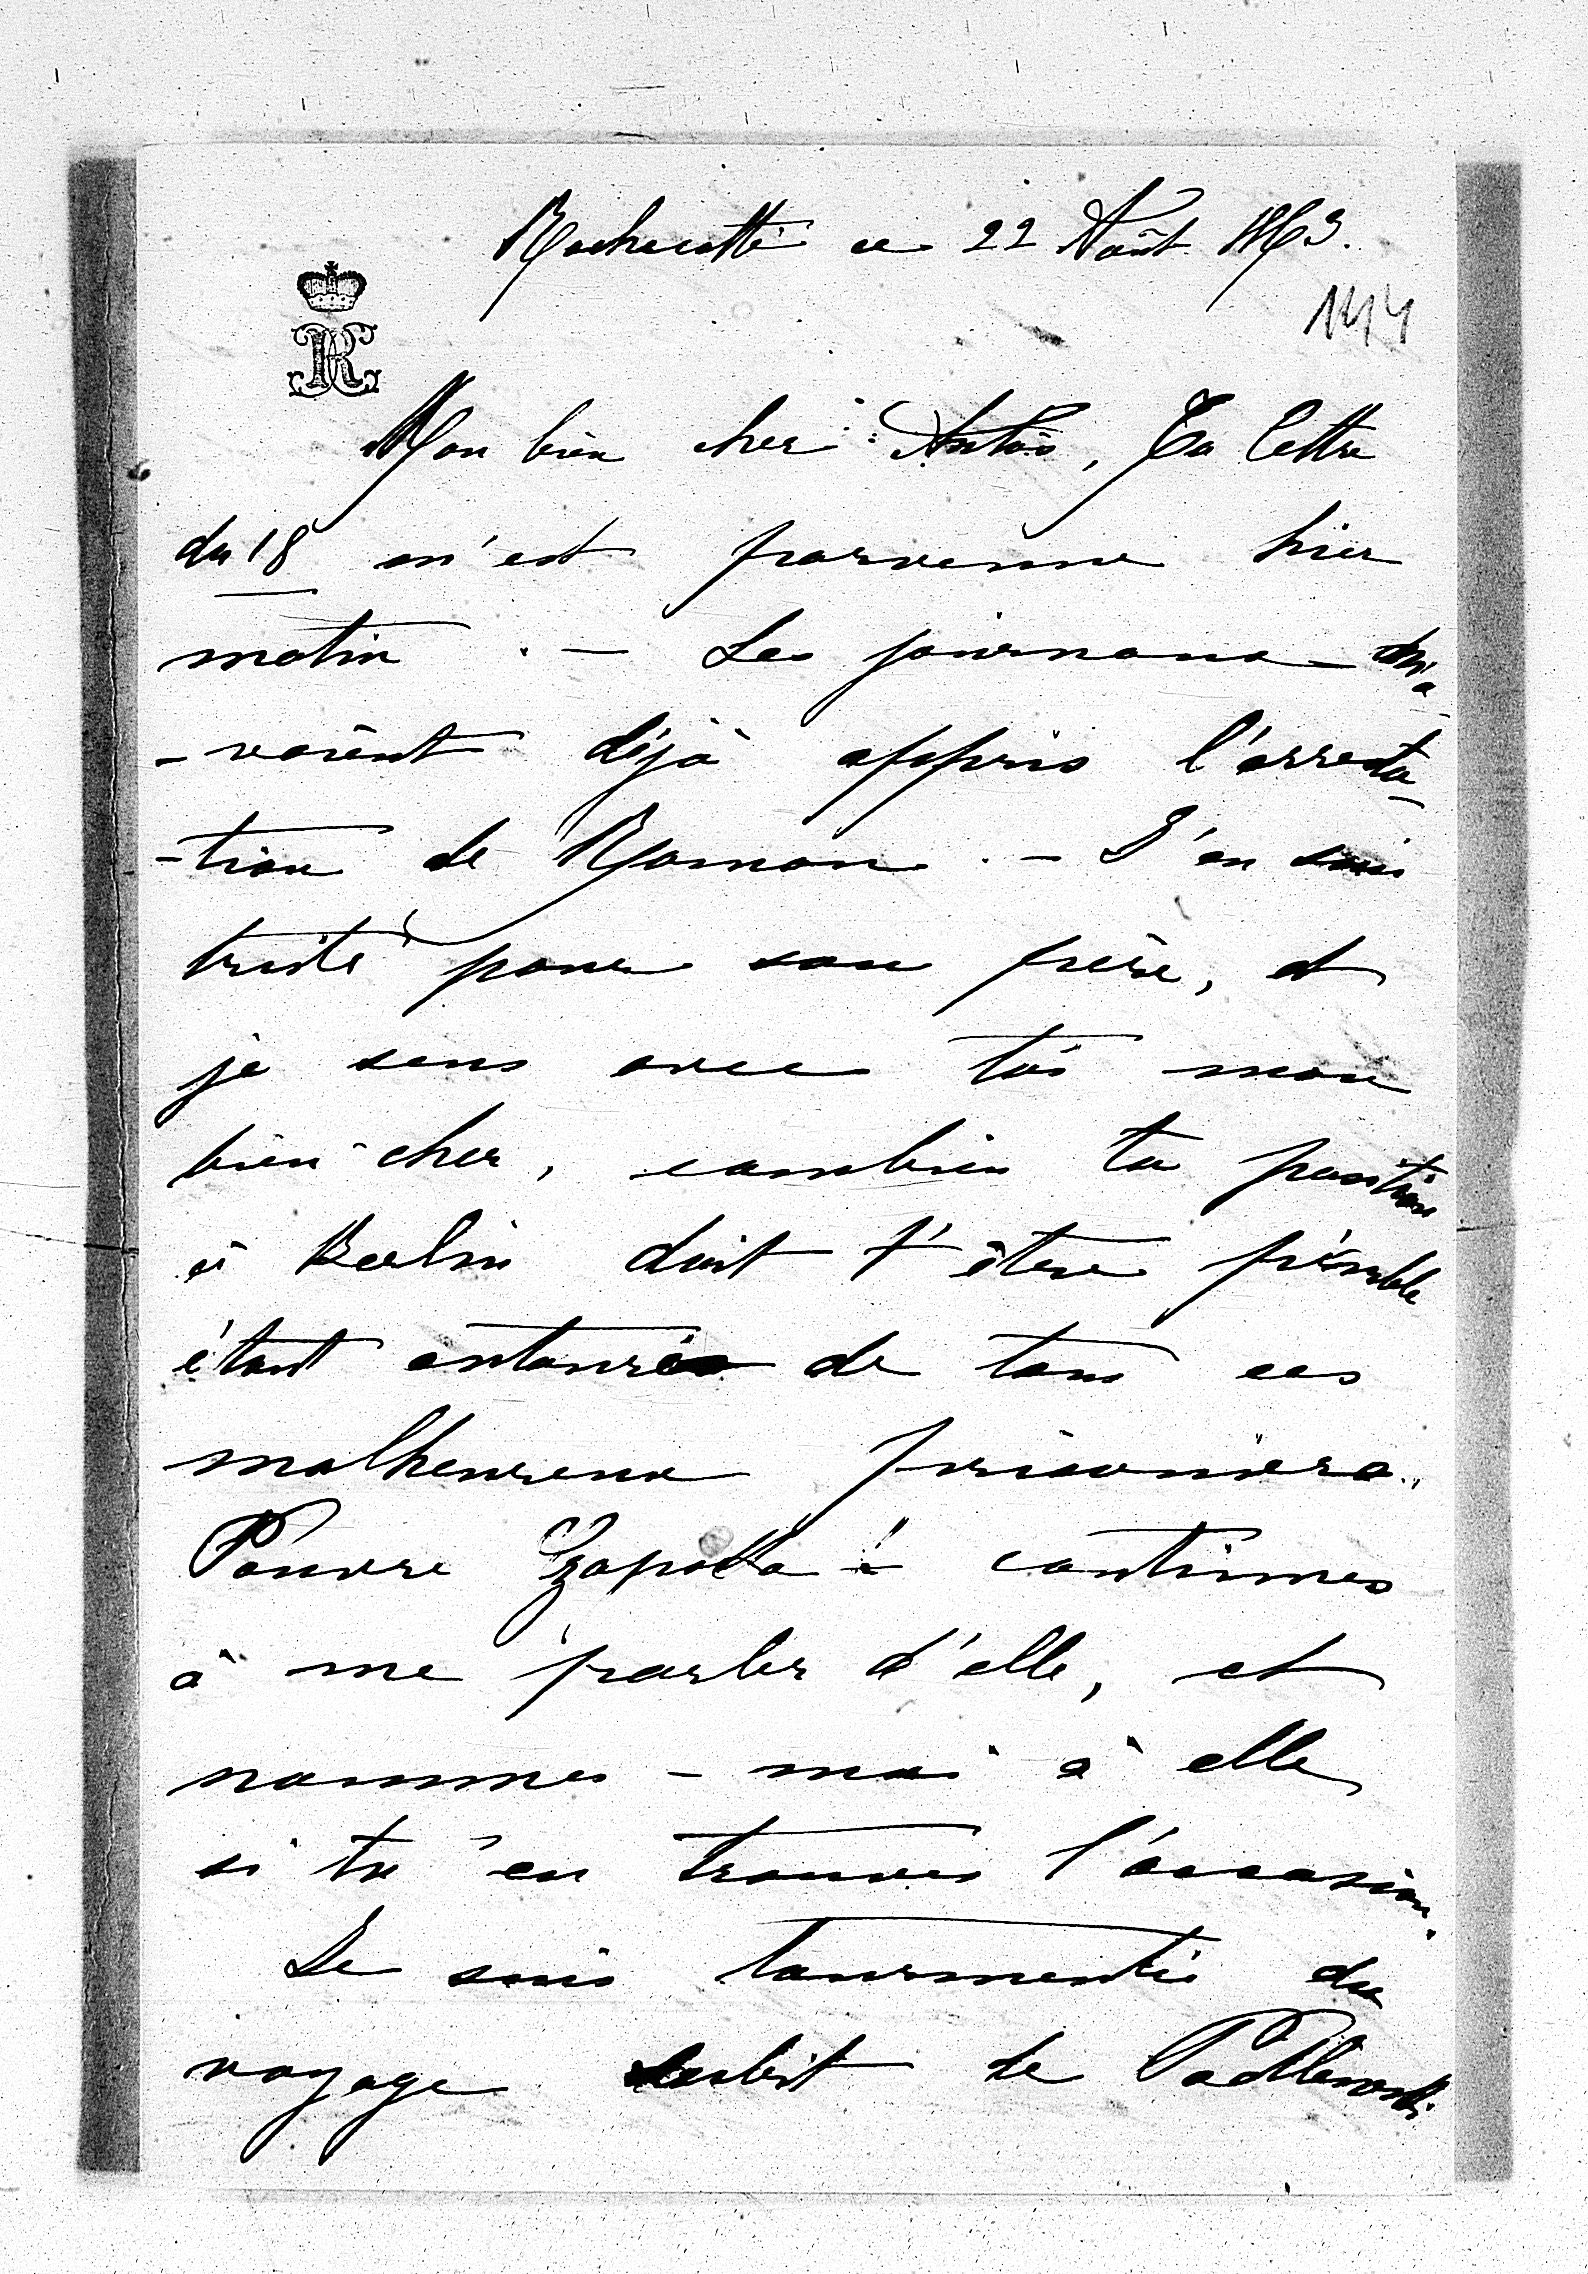 Rochecotte ce 22 Août 1863.
144
Mon bien cher Antoś, Ta lettre
du 18 m'est parvenue hier
matin. — Les journaux m'a-
-vaient déjà appris l'arresta-
-tion de Roman. — J'en suis
triste pour son frère, et
je sens avec toi mon
bien cher, combien ta position
à Berlin doit t'être pénible
étant entouré de tous ces
malheureux prisonniers.
Pauvre Czapska ! continues
à me parler d'elle, et
nommes-moi à elle,
si tu en trouves l'occasion.
Je suis tourmentée du
voyage subit de Padlewski